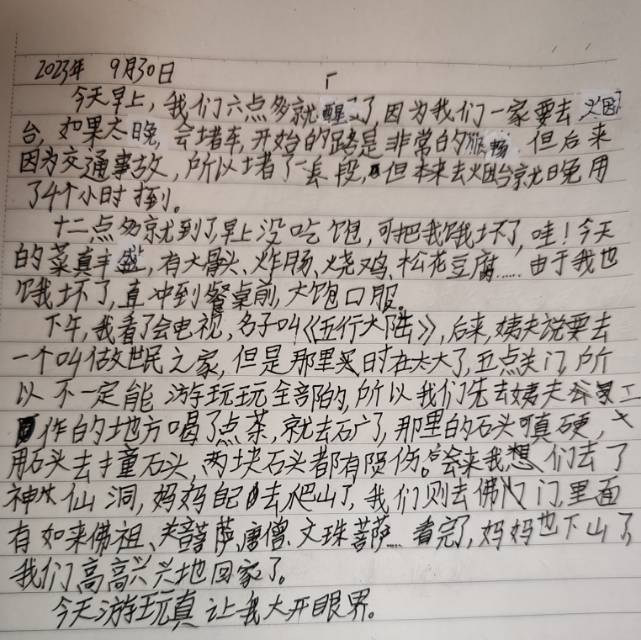 2023年 9月30日
今天早上，我们六点多就醒了，因为我们一家要去烟
台，如果太晚，会堵车，开始的路是非常的顺畅，但后来
因为交通事故，所以堵了一长段，但本来去烟台就晚用
了4个小时到。
十二点多就到了，早上没吃饱，可把我饿坏了，哇！今天
的菜真丰盛，有大骨头、炸肠、烧鸡、松花豆腐……由于我也
饿坏了，直冲到餐桌前，大饱口服。
下午，我看了会电视，名子叫《五行大陆》，后来，姨夫说要去
一个叫做世民之家，但是那里实时在太大了，五点关门，所
以不一定能游玩玩全部的，所以我们先去姨夫工
作的地方喝了点茶，就去石厂了，那里的石头真硬，
用石头去撞石头，两块石头都有陨伤。会来我想们去了
神仙洞，妈妈自己去爬山了，我们则去佛门，门里面
有如来佛祖、菩萨、唐僧、文珠菩萨……看完了，妈妈也下山了，
我们高高兴兴地回家了。
今天游玩真让我大开眼界。